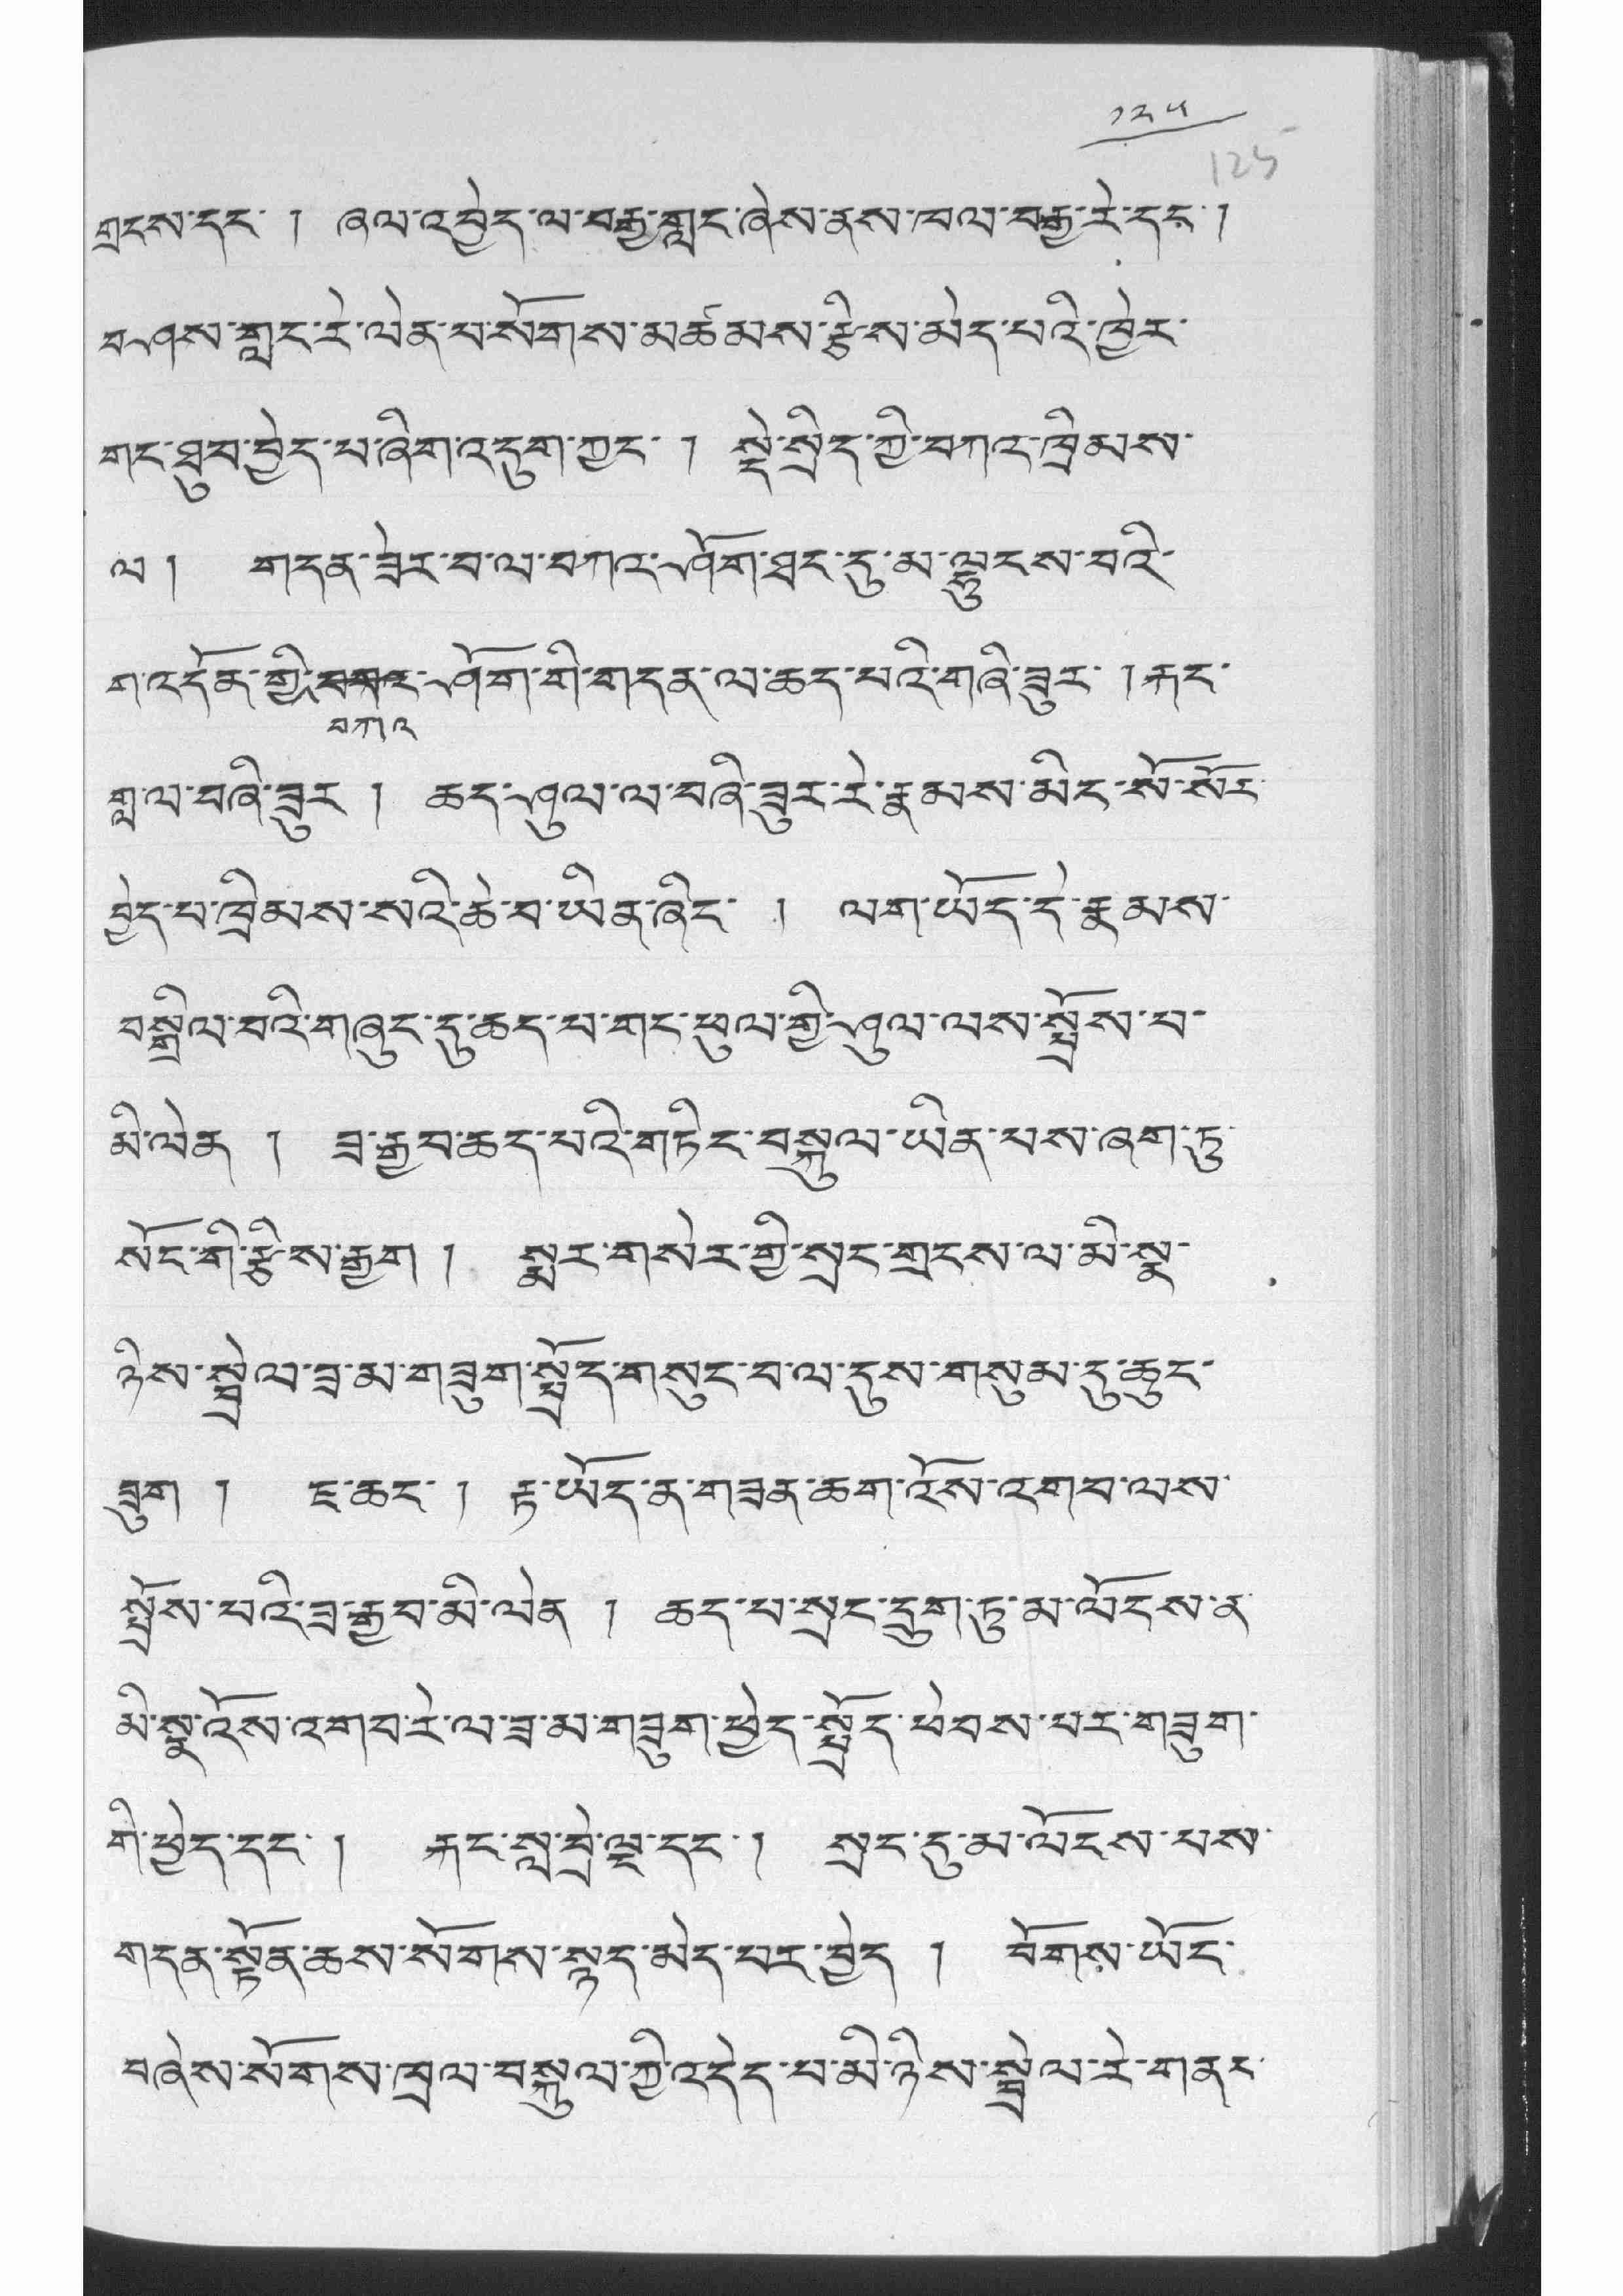 ༡༢༥
125
གྲངས་དང་ ། ཞལ་འབྱེད་ལ་བརྒྱ་གླང་ཞེས་ནས་ཁལ་བརྒྱ་རེ་དང་ །
བཤས་གླང་རེ་ལེན་པ་སོགས་མཚམས་རྩིས་མེད་པའི་ཁྱེར་
གང་ཐུབ་བྱེད་པ་ཞིག་འདུག་ཀྱང་ ། སྡེ་སྲིད་ཀྱི་བཀའ་ཁྲིམས་
ལ ། གདན་ཟེར་བ་ལ་བཀའ་ཤོག་ཐང་དུ་མ་ལྷུངས་བའི་
ག་འདོན་གྱི་བཀའ་ཤོག་གི་གདན་ལ་ཆད་པའི་གཞི་ཟུར་ ། རྐང་
གླ་ལ་བཞི་ཟུར ། ཆད་ཤུལ་ལ་བཞི་ཟུར་རེ་རྣམས་མིང་སོ་སོར་
བྱེད་པ་ཁྲིམས་སའི་ཆེ་བ་ཡིན་ཞིང་ ། ལག་ཡོད་དེ་རྣམས་
བསྒྲིལ་བའི་གཞུང་དུ་ཆད་པ་གང་ཕུལ་གྱི་ཤུལ་ལས་སྤྲོས་པ་
མི་ལེན ། ཟ་རྒྱབ་ཆད་པའི་གཏིང་བསྐུལ་ཡིན་པས་ཞག་ཏུ་
སོང་གི་རྩིས་རྒྱག ། སྨར་གསེར་གྱི་སྲང་གྲངས་ལ་མི་སྣ་
ཉིས་སྦྲེལ་ཟ་མ་གཟུག་སྤྲོད་གསུང་བ་ལ་དུས་གསུམ་དུ་ཆུང་
ཟུག ། ཇ་ཆང་ ། རྟ་ཡོད་ན་གཟན་ཆག་འོས་འགབ་ལས་
སྤྲོས་པའི་ཟ་རྒྱབ་མི་ལེན ། ཆད་པ་སྲང་དྲུག་ཏུ་མ་ལོངས་ན་
མི་སྣ་འོས་འགབ་རེ་ལ་ཟ་མ་གཟུག་ཕྱེད་སྤྲོད་ཕེབས་པར་གཟུག་
གི་ཕྱེད་དང་ ། རྐང་སླ་བྲེ་ལྔ་དང་ ། སྲང་དུ་མ་ལོངས་པས་
གདན་སྟོན་ཆས་སོགས་སྟད་མེད་པར་བྱེད ། བོགས་ཡོད་
བཞེས་སོགས་ཁྲལ་བསྐུལ་ཀྱི་འདེད་པ་མི་ཉིས་སྦྲེལ་རེ་གནང་